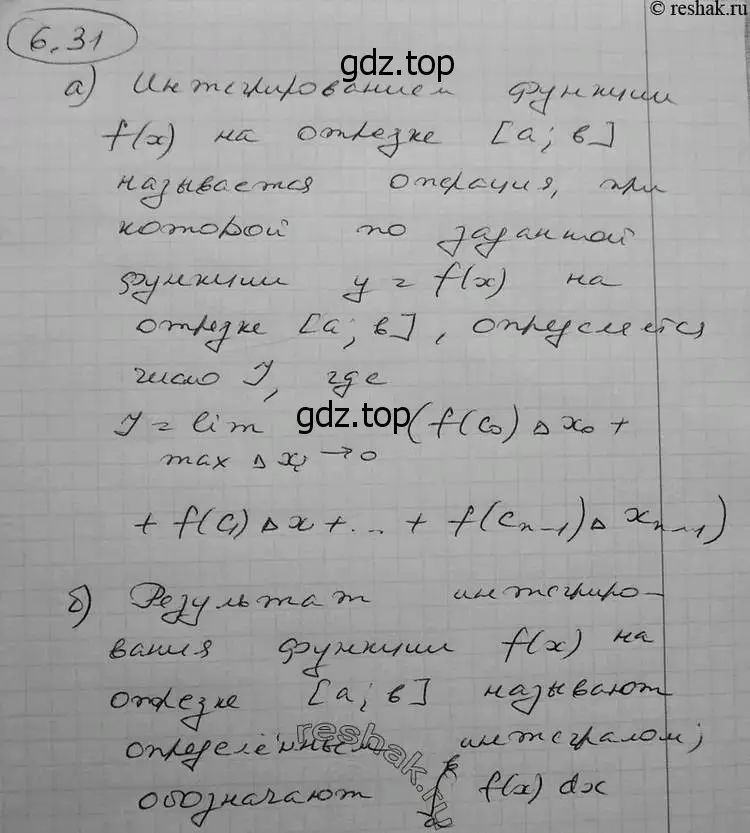 © reshak.ru
6.31
gdz.top
а) Интегрированием функции
f(x) на отрезке [a; в]
называется операция, при
которой по заданной
функции y = f(x) на
отрезке [a; в], определяется
число J, где
J = lim (f(c₀) Δx₀ +
gdz.top
max Δxᵢ → 0
+ f(c₁) Δx + ... + f(cₙ₋₁) Δxₙ₋₁)
б) Результат интегриро-
вания функции f(x) на
отрезке [a; в] называют
определённым интегралом;
reshak.ru
обозначают ∫ₐᵇ f(x) dx